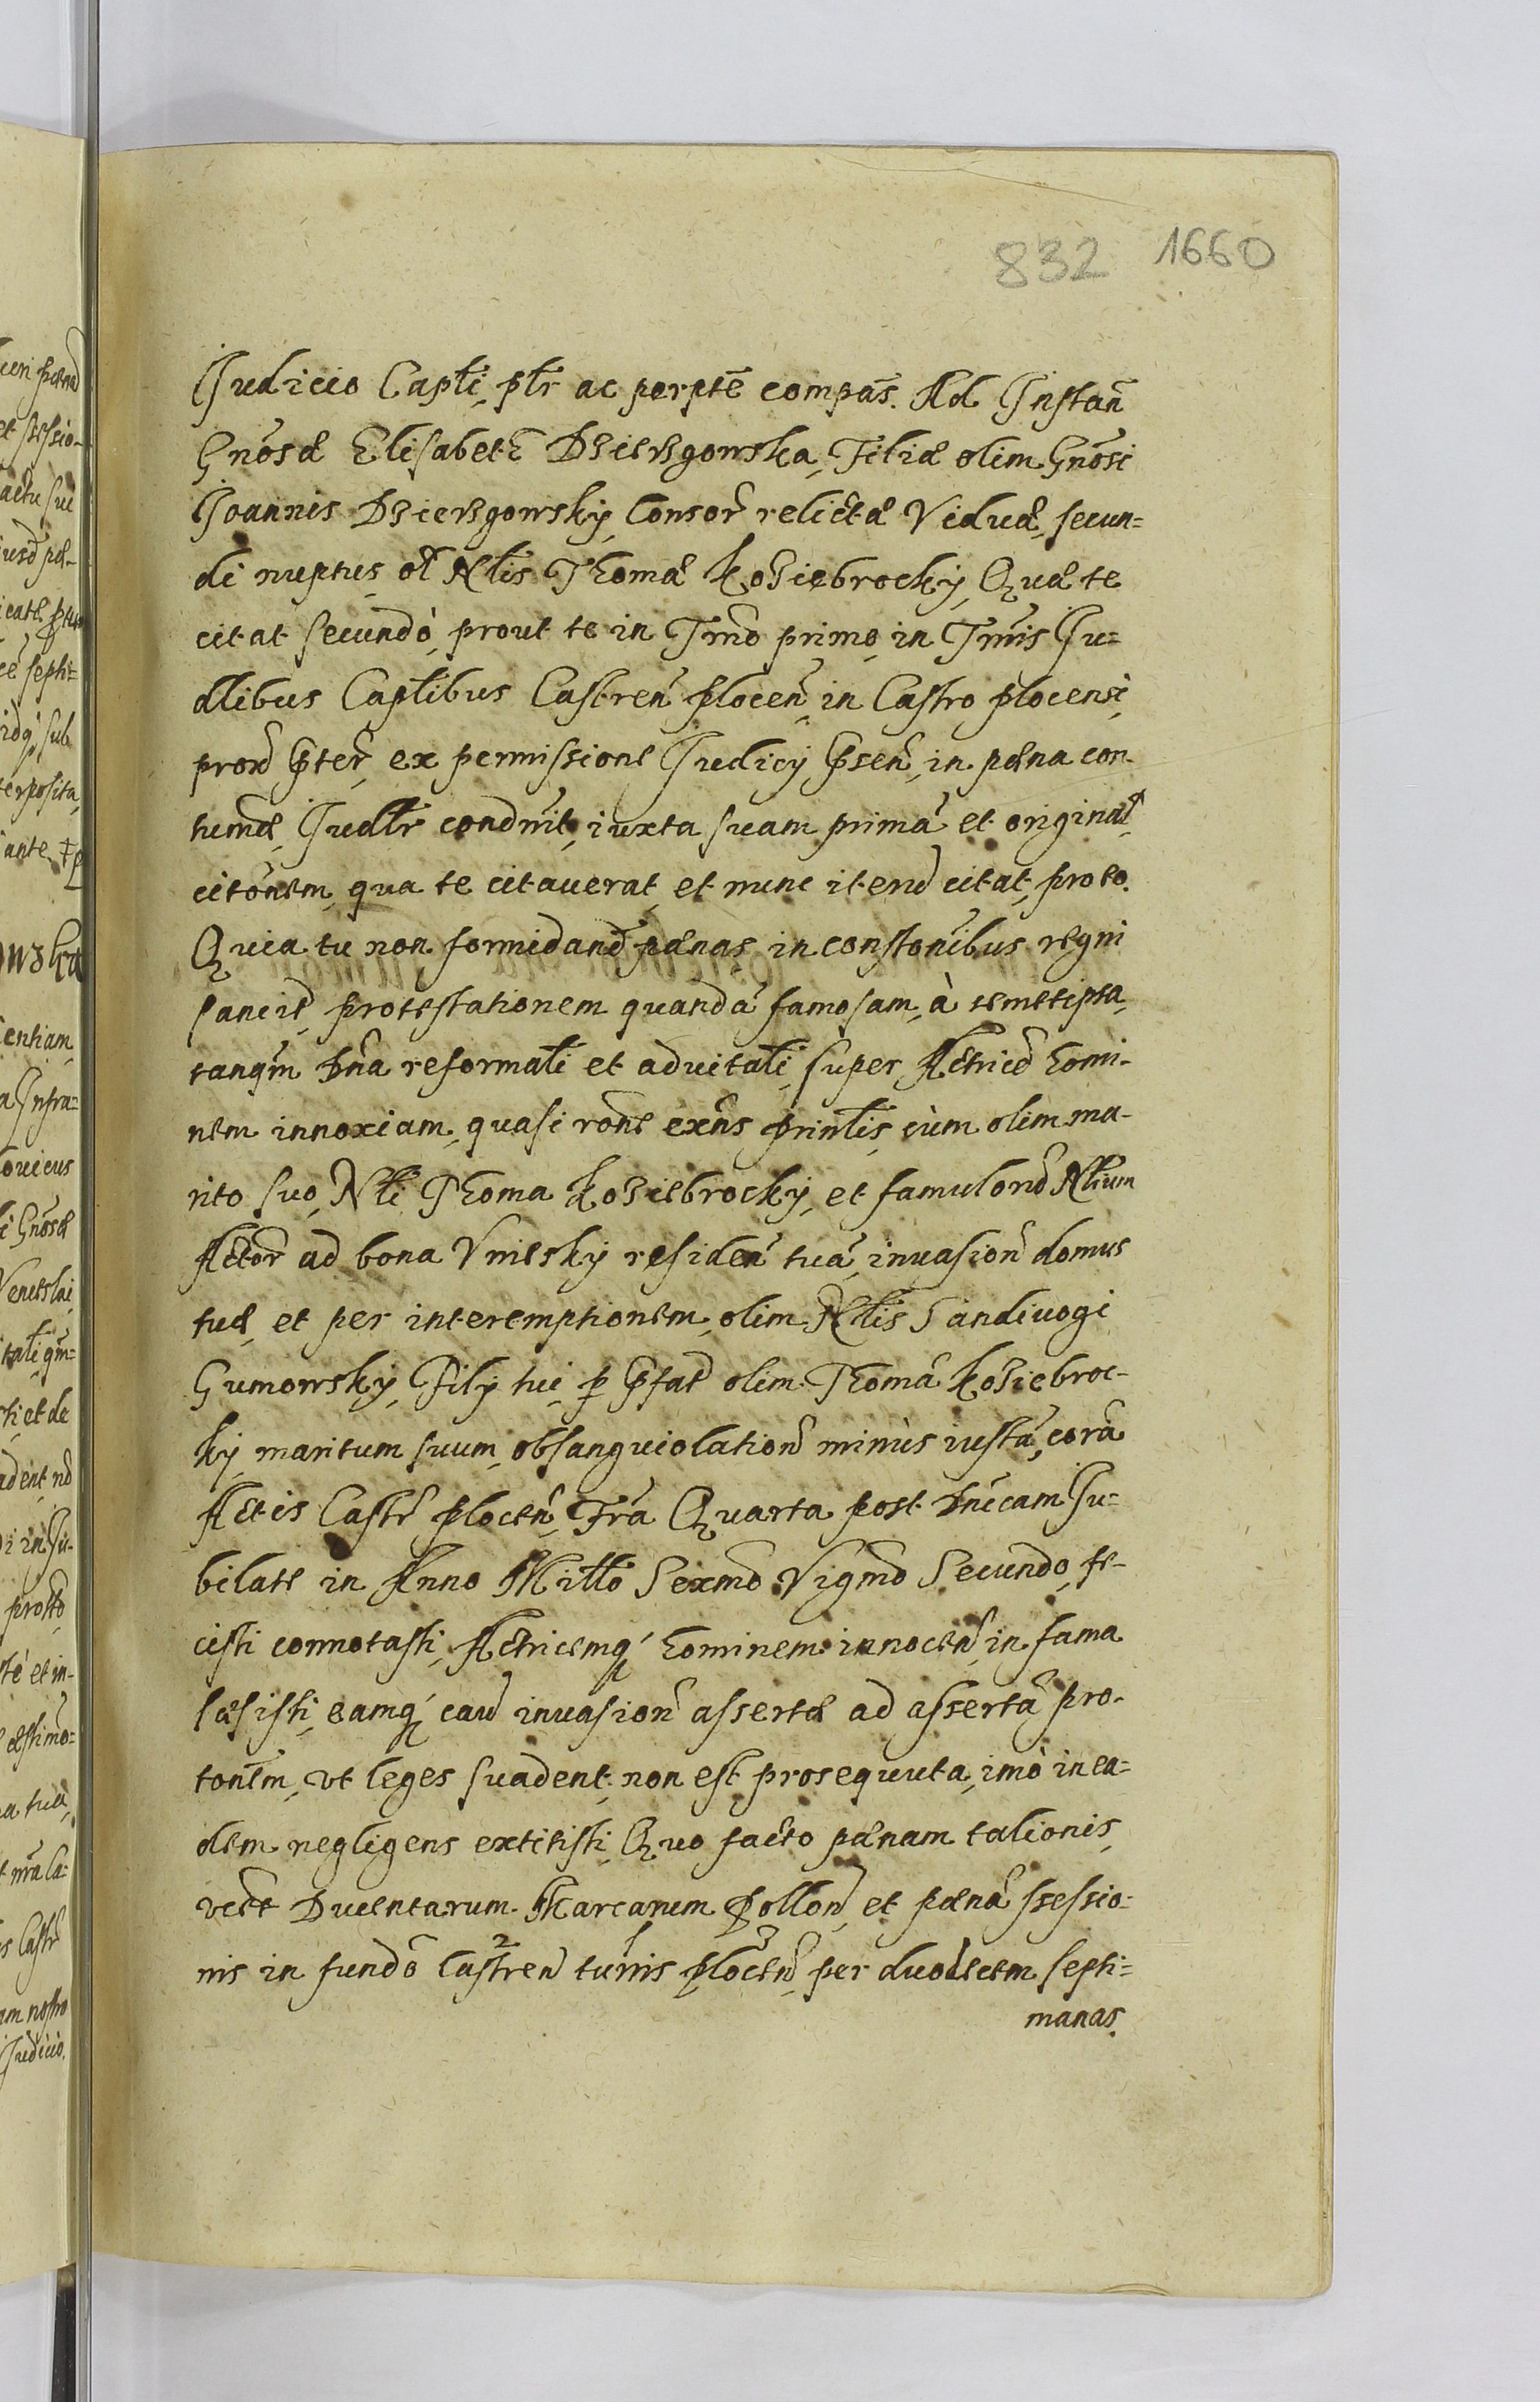 832 1660
Judicio Capti, ptr ac perpte compas. Ad Instan
Gnosæ Elisabete Dzierzgowska, Filiæ olim Gnosi
Joannis Dzierzgowsky, Consor relictæ Viduæ, secun=
di nuptus, ol Nlis Thomæ Koziebrocky, Quæ te
citat secundò, prout te in Tmo primo, in Tmis Ju=
dlibus Captibus Castren Plocen, in Castro plocensi,
prox pter, ex permissione Judicy psen, in pæna con-
tumæ, Judltr condmit, iuxta suam primã et original
citonem, qua te citauerat, et nunc itend citat, pro eo.
Quia tu non formidand pænas, in constonibus regni
sancit, protestationem quandã famosam, à temetipsa,
tanqm Dna reformali et aduitali, super Actricem homi-
nem innoxiam, quasi rone exns printis, cùm olim ma-
rito suo, Nli Thoma Koziebrocky, et famulorum Nlium
Actor ad bona Vniesky residen tuã, inuasion domus
tuæ, et per interemptionem, olim Nlis Sandiuogi
Gumowsky, Fily tui, p pfat olim Thomã Koziebroc-
ky, maritum suum, obsanguiolation minùs iustã, corã
Actis Castr Plocen, Fra Quarta post Dnicam Ju=
bilate in Anno Millo Sexmo Vigmo Secundo, fe-
cisti connotasti, Actricemq hominem innocen, in fama
læsisti, eamq cau inuasion assertæ ad assertã pro-
tonem, vt leges suadent, non est prosequuta, imò in ea-
dem negligens extitisti, Quo facto pænam talionis,
vedt Ducentarum Marcarum Pollon, et pænã ssessio=
nis in fundo Castren turris Plocen, per duodecem septi=
manas.